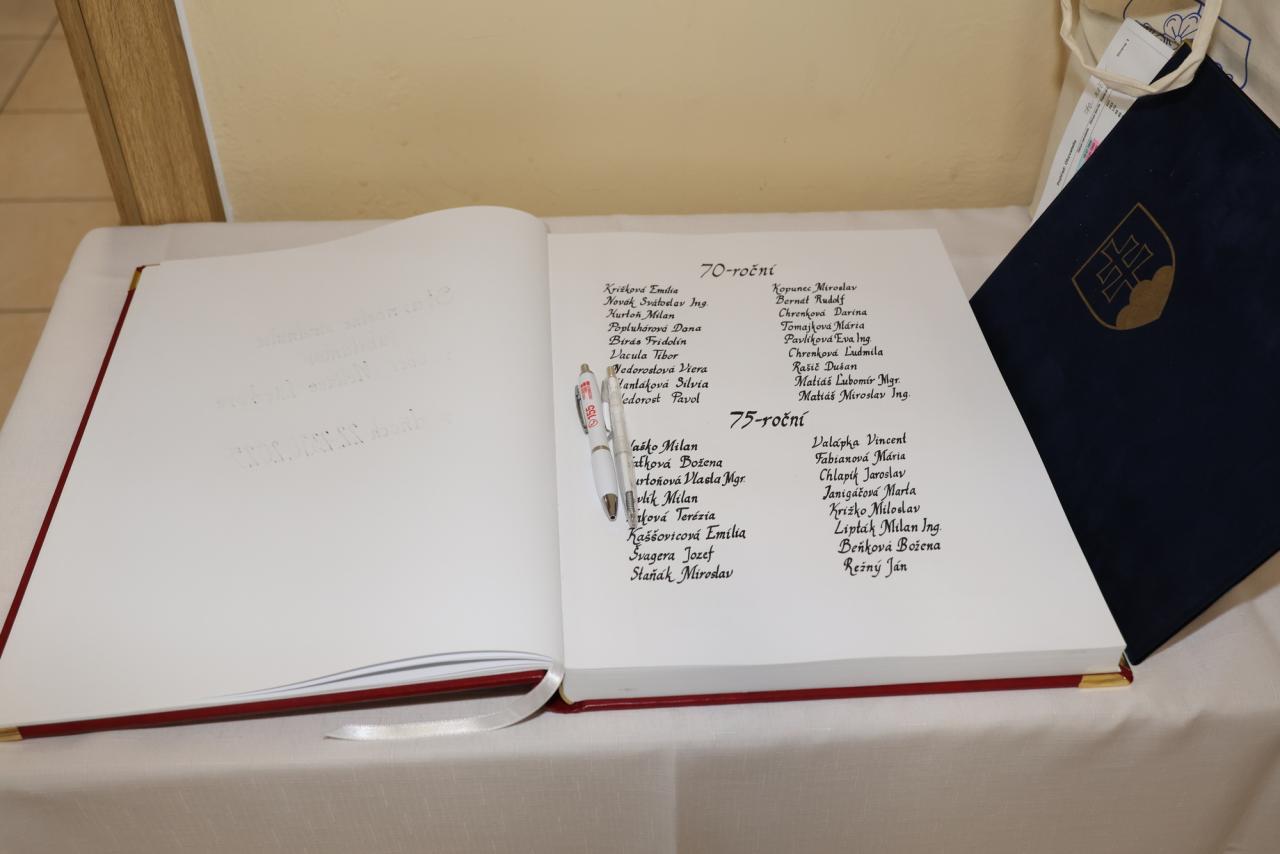 70-roční
Križková Emília
Novák Svätoslav Ing.
Kurtoň Milan
Popluhárová Dana
Bírás Fridolín
Vacula Tibor
Nedorostová Viera
Silvia
Pavol
Kopunec Miroslav
Bernát Rudolf
Chrenková Darina
Tomajková Mária
Pavlíková Eva Ing.
Chrenková Ľudmila
Rašič Dušan
Matiáš Ľubomír Mgr.
Matiáš Miroslav Ing.
75-roční
Milan
Božena
Vlasta Mgr.
Milan
Terézia
Kaššovicová Emília
Švagera Jozef
Staňák Miroslav
Valápka Vincent
Fabianová Mária
Chlapík Jaroslav
Janigáčová Marta
Križko Miloslav
Lipták Milan Ing.
Beňková Božena
Režný Ján
155